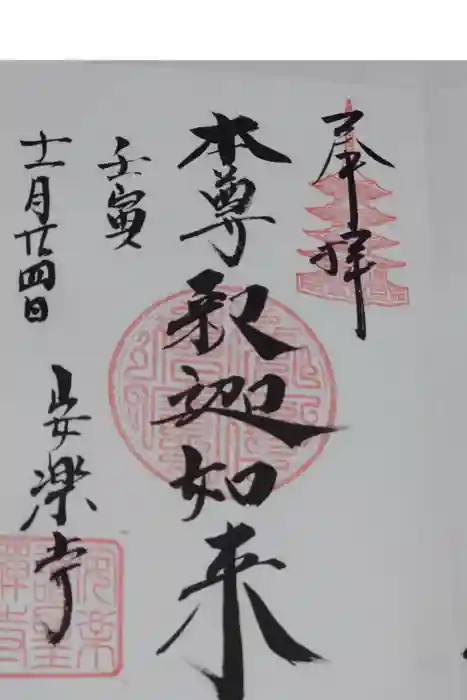 奉拝
本尊釈迦如来
壬寅
十一月廿四日
安楽寺